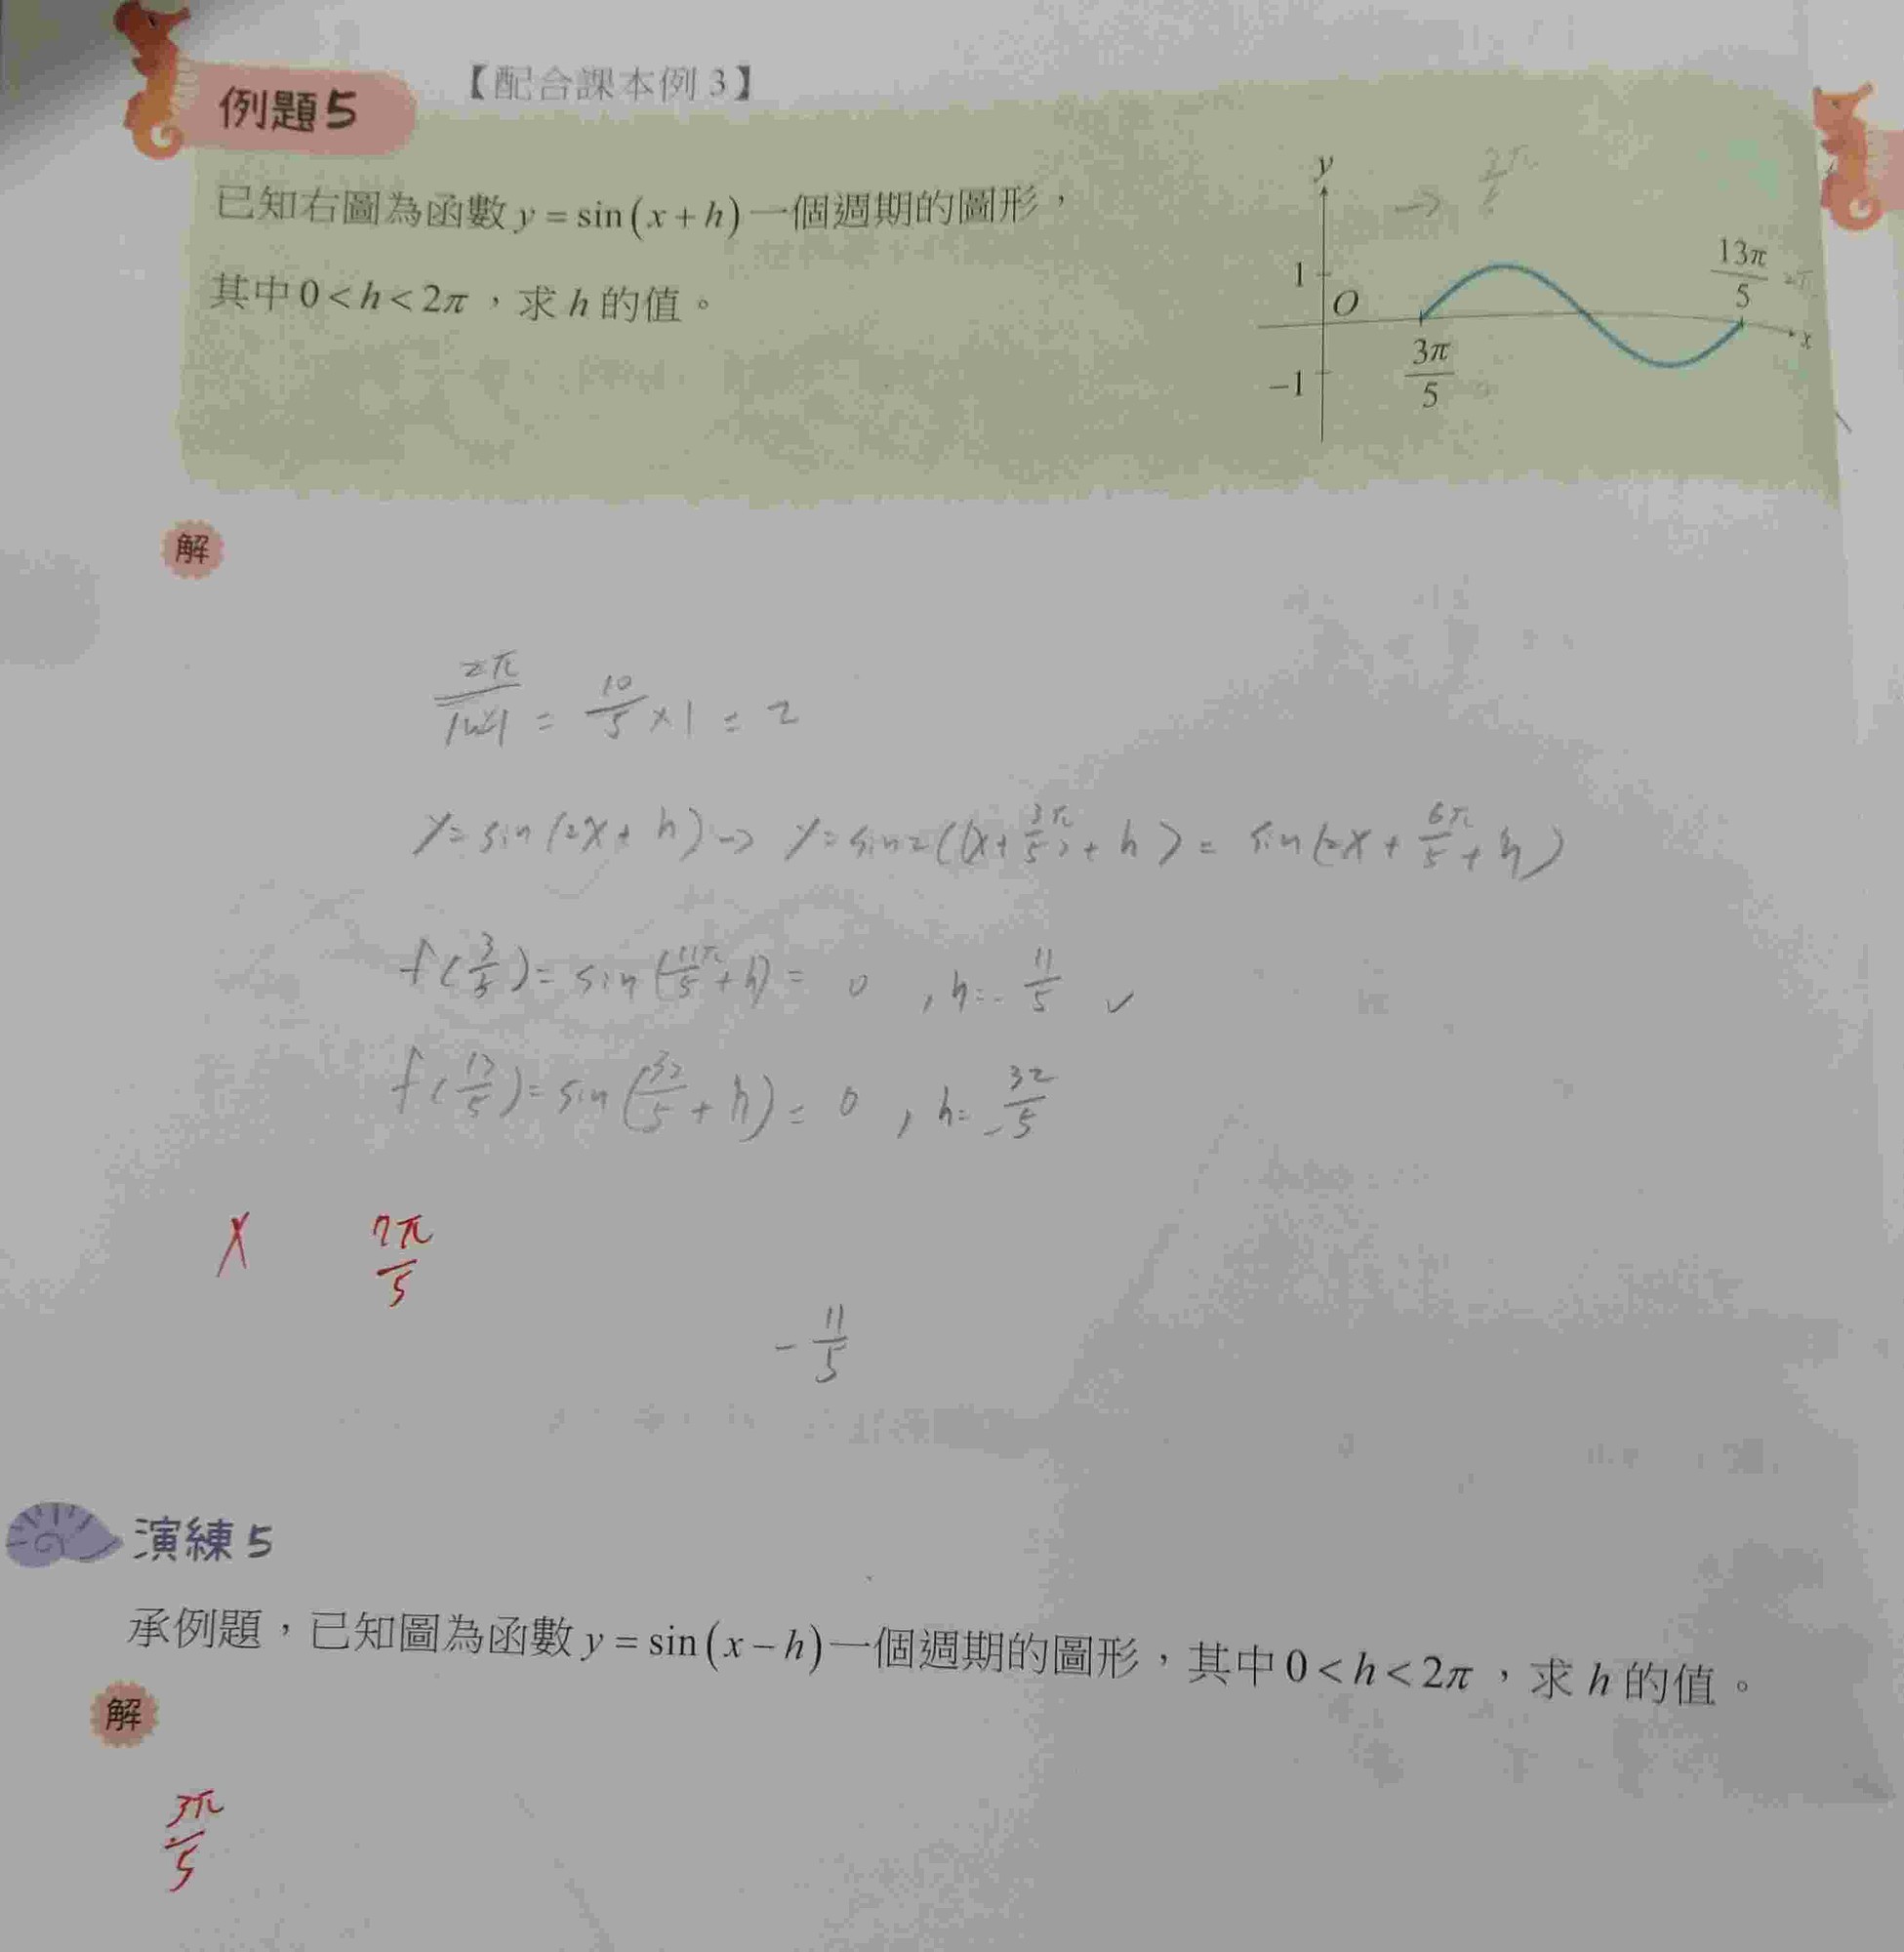 【配合課本例 3】
例題5
已知右圖為函數 y = sin(x + h) 一個週期的圖形，
其中 0 < h < 2π ，求 h 的值。
y
1
O
-1
3π/5
13π/5
x
解
2π/|w| = 10/5 × 1 = 2
y = sin(2x + h) → y = sin2((x + 3π/5) + h) = sin(2x + 6π/5 + h)
f(3/5) = sin(11π/5 + h) = 0 , h = -11/5 ✓
f(13/5) = sin(32/5 + h) = 0 , h = -32/5
X 7π/5
-11/5
演練 5
承例題，已知圖為函數 y = sin(x − h) 一個週期的圖形，其中 0 < h < 2π ，求 h 的值。
解
3π/5